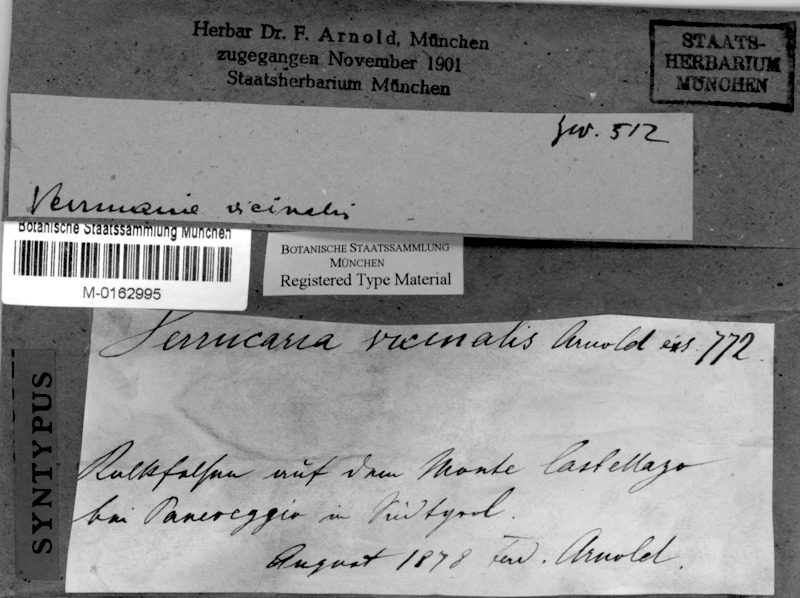 Herbar Dr. F. Arnold, München
zugegangen November 1901
Staatsherbarium München
STAATS-
HERBARIUM
MÜNCHEN
512
Verrucaria vicinalis
Botanische Staatssammlung München
M-0162995
BOTANISCHE STAATSSAMMLUNG
MÜNCHEN
Registered Type Material
SYNTYPUS
Verrucaria vicinalis Arnold exs. 772.
Kalkfelsen auf dem Monte Castellazo
bei Paneveggio in Südtyrol.
August 1878 Ferd. Arnold.